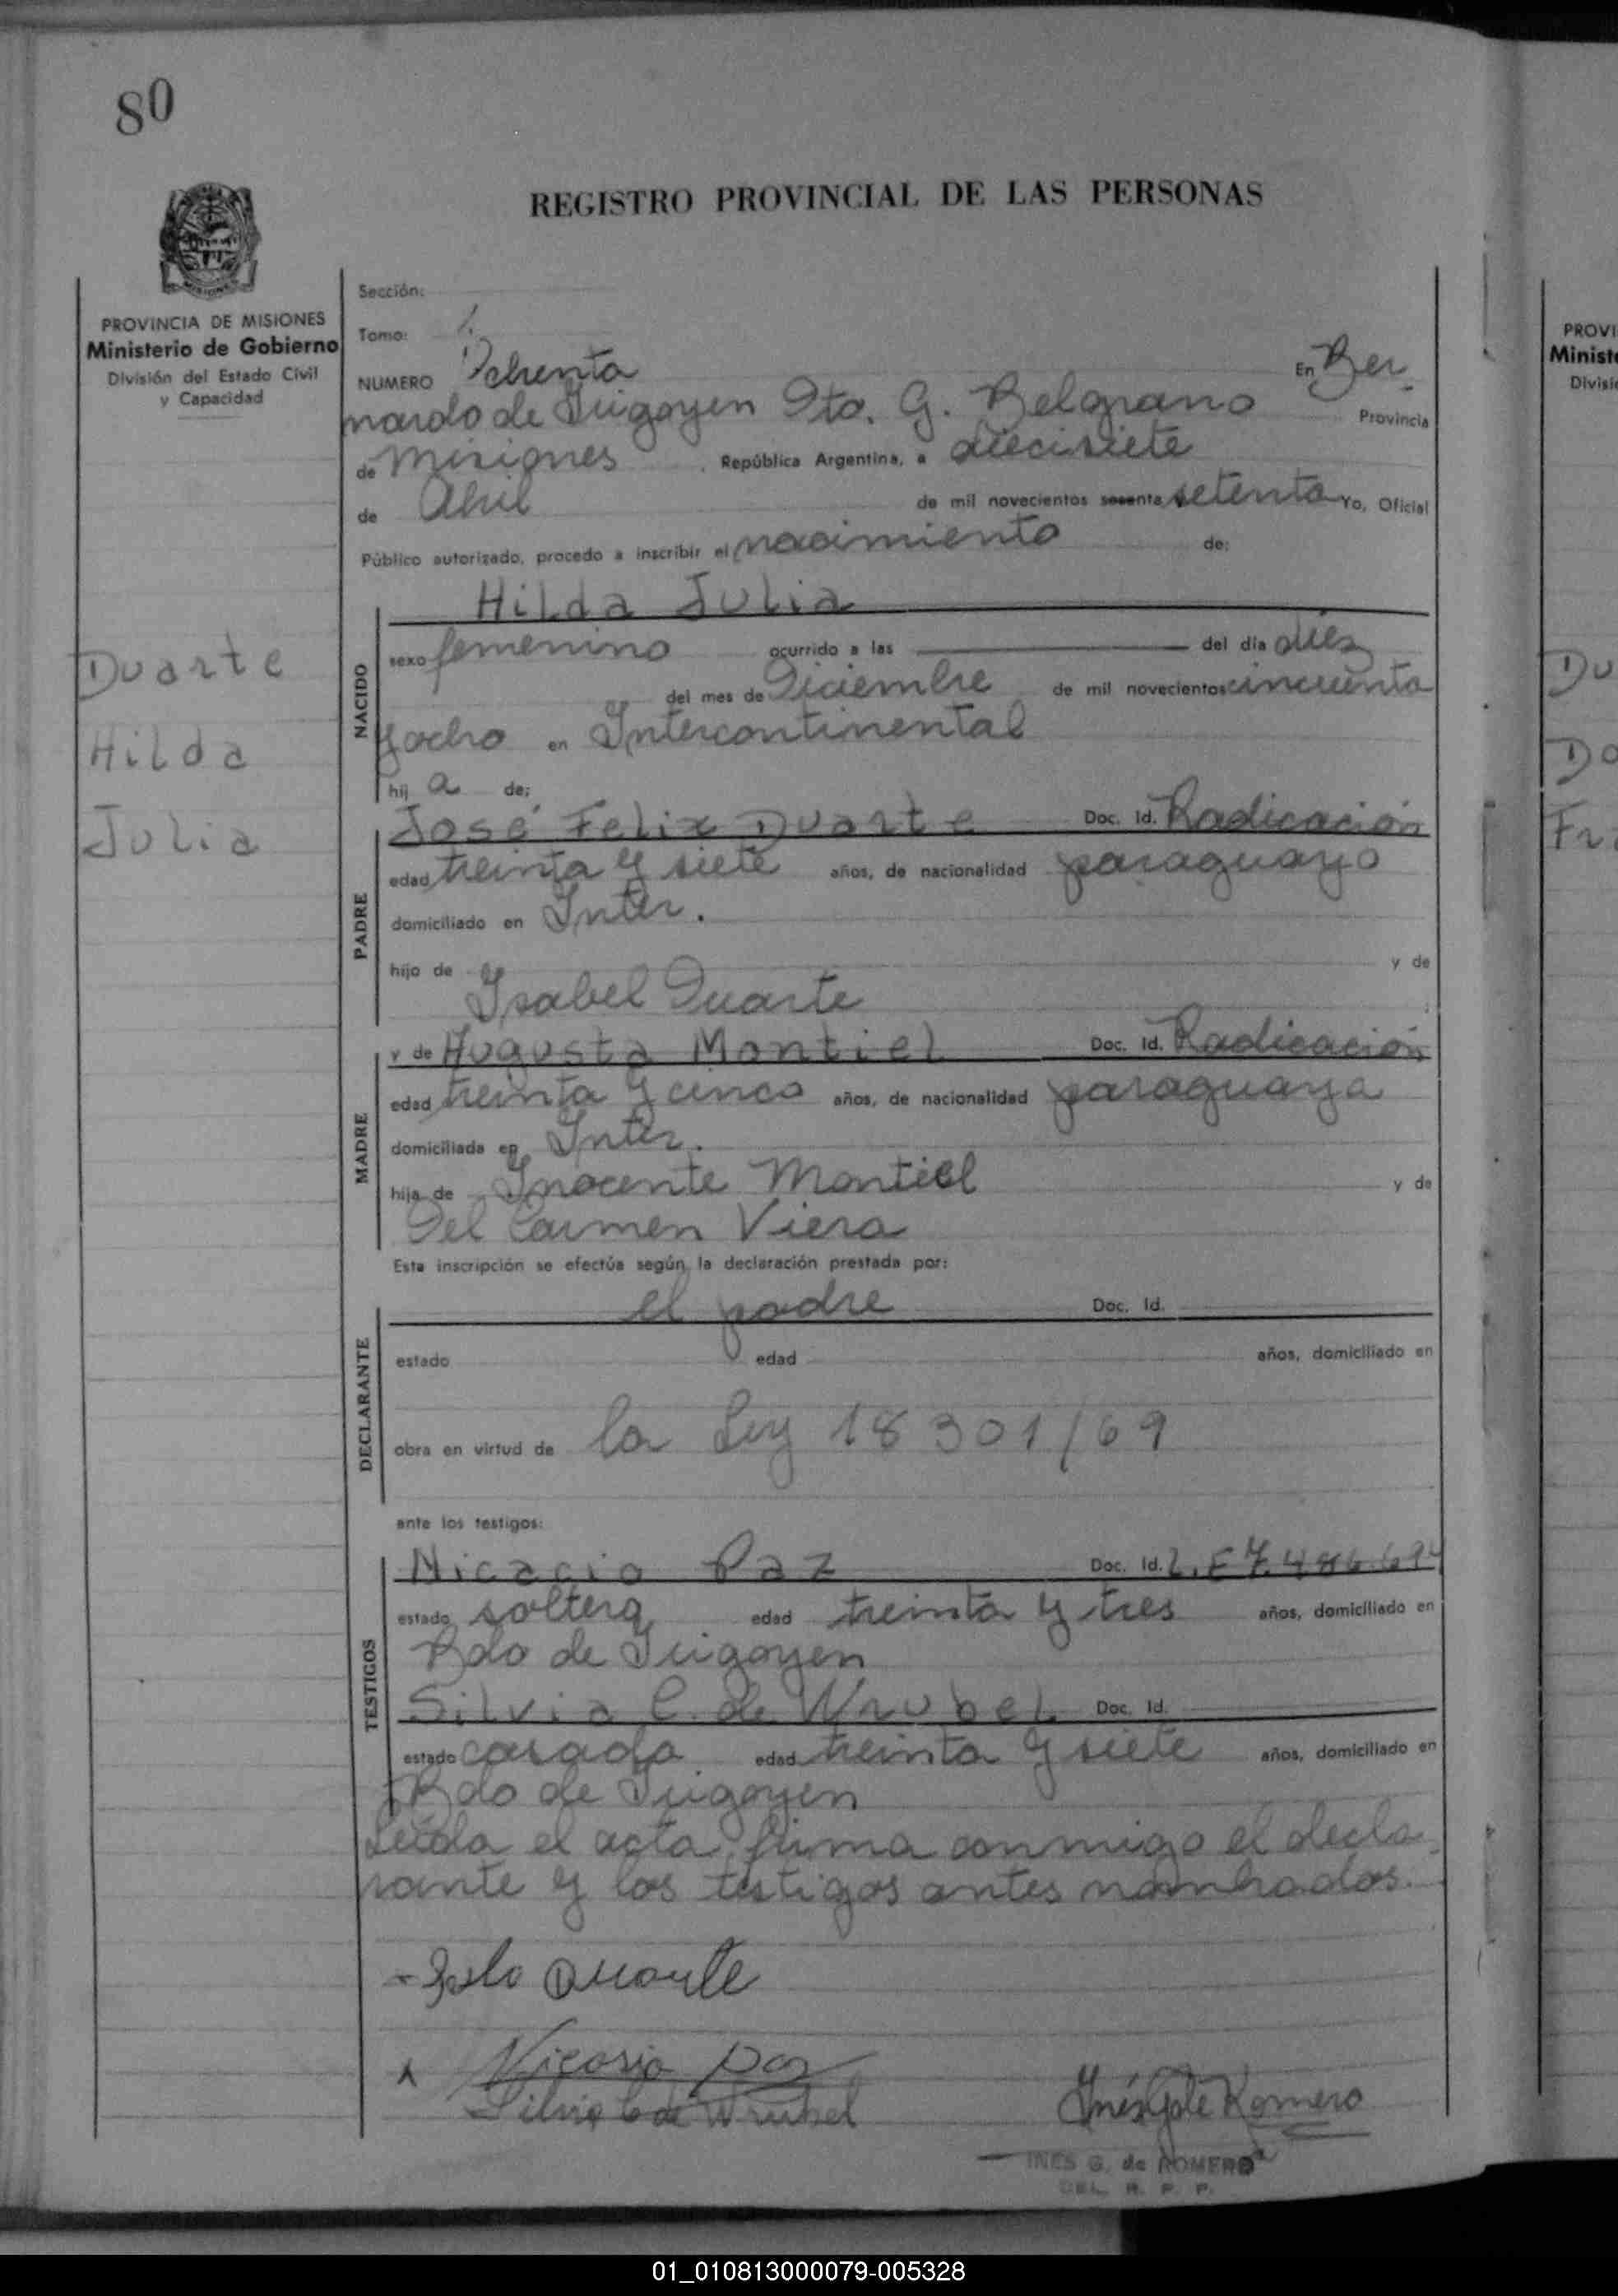 80
REGISTRO PROVINCIAL DE LAS PERSONAS
PROVINCIA DE MISIONES
Ministerio de Gobierno
División del Estado Civil
y Capacidad
Duarte
Hilda
Julia
Sección:
Tomo: 1
NUMERO Ochenta En Ber
nardo de Irigoyen Dto. G. Belgrano Provincia
de Misiones, República Argentina, a diecisiete
de Abril de mil novecientos sesenta setenta Yo, Oficial
Público autorizado, procedo a inscribir el nacimiento de:
Hilda Julia
NACIDO
sexo femenino ocurrido a las del día diez
del mes de Diciembre de mil novecientos cincuenta
y ocho en Intercontinental
hij a de:
PADRE
José Felix Duarte Doc. Id. Radicación
edad treinta y siete años, de nacionalidad paraguayo
domiciliado en Inter.
hijo de y de
Isabel Duarte
MADRE
y de Augusta Montiel Doc. Id. Radicación
edad treinta y cinco años, de nacionalidad paraguaya
domiciliada en Inter.
hija de Inocente Montiel y de
Del Carmen Viera
Esta inscripción se efectúa según la declaración prestada por:
DECLARANTE
el padre Doc. Id.
estado edad años, domiciliado en
obra en virtud de la Ley 18301/69
ante los testigos:
TESTIGOS
Nicacio Paz Doc. Id. L.E 7.486.694
estado soltera edad treinta y tres años, domiciliado en
Bdo de Irigoyen
Silvia C. de Wrubel Doc. Id.
estado casada edad treinta y siete años, domiciliado en
Bdo de Irigoyen
Leída el acta, firma conmigo el decla
rante y los testigos antes nombrados.
Duarte
Nicasio Paz
Silvia C de Wrubel
Inés G de Romero
INES G. de ROMERO
DEL. R. P. P.
PROVI
Ministe
Divisi
Du
Do
Fr
01_010813000079-005328